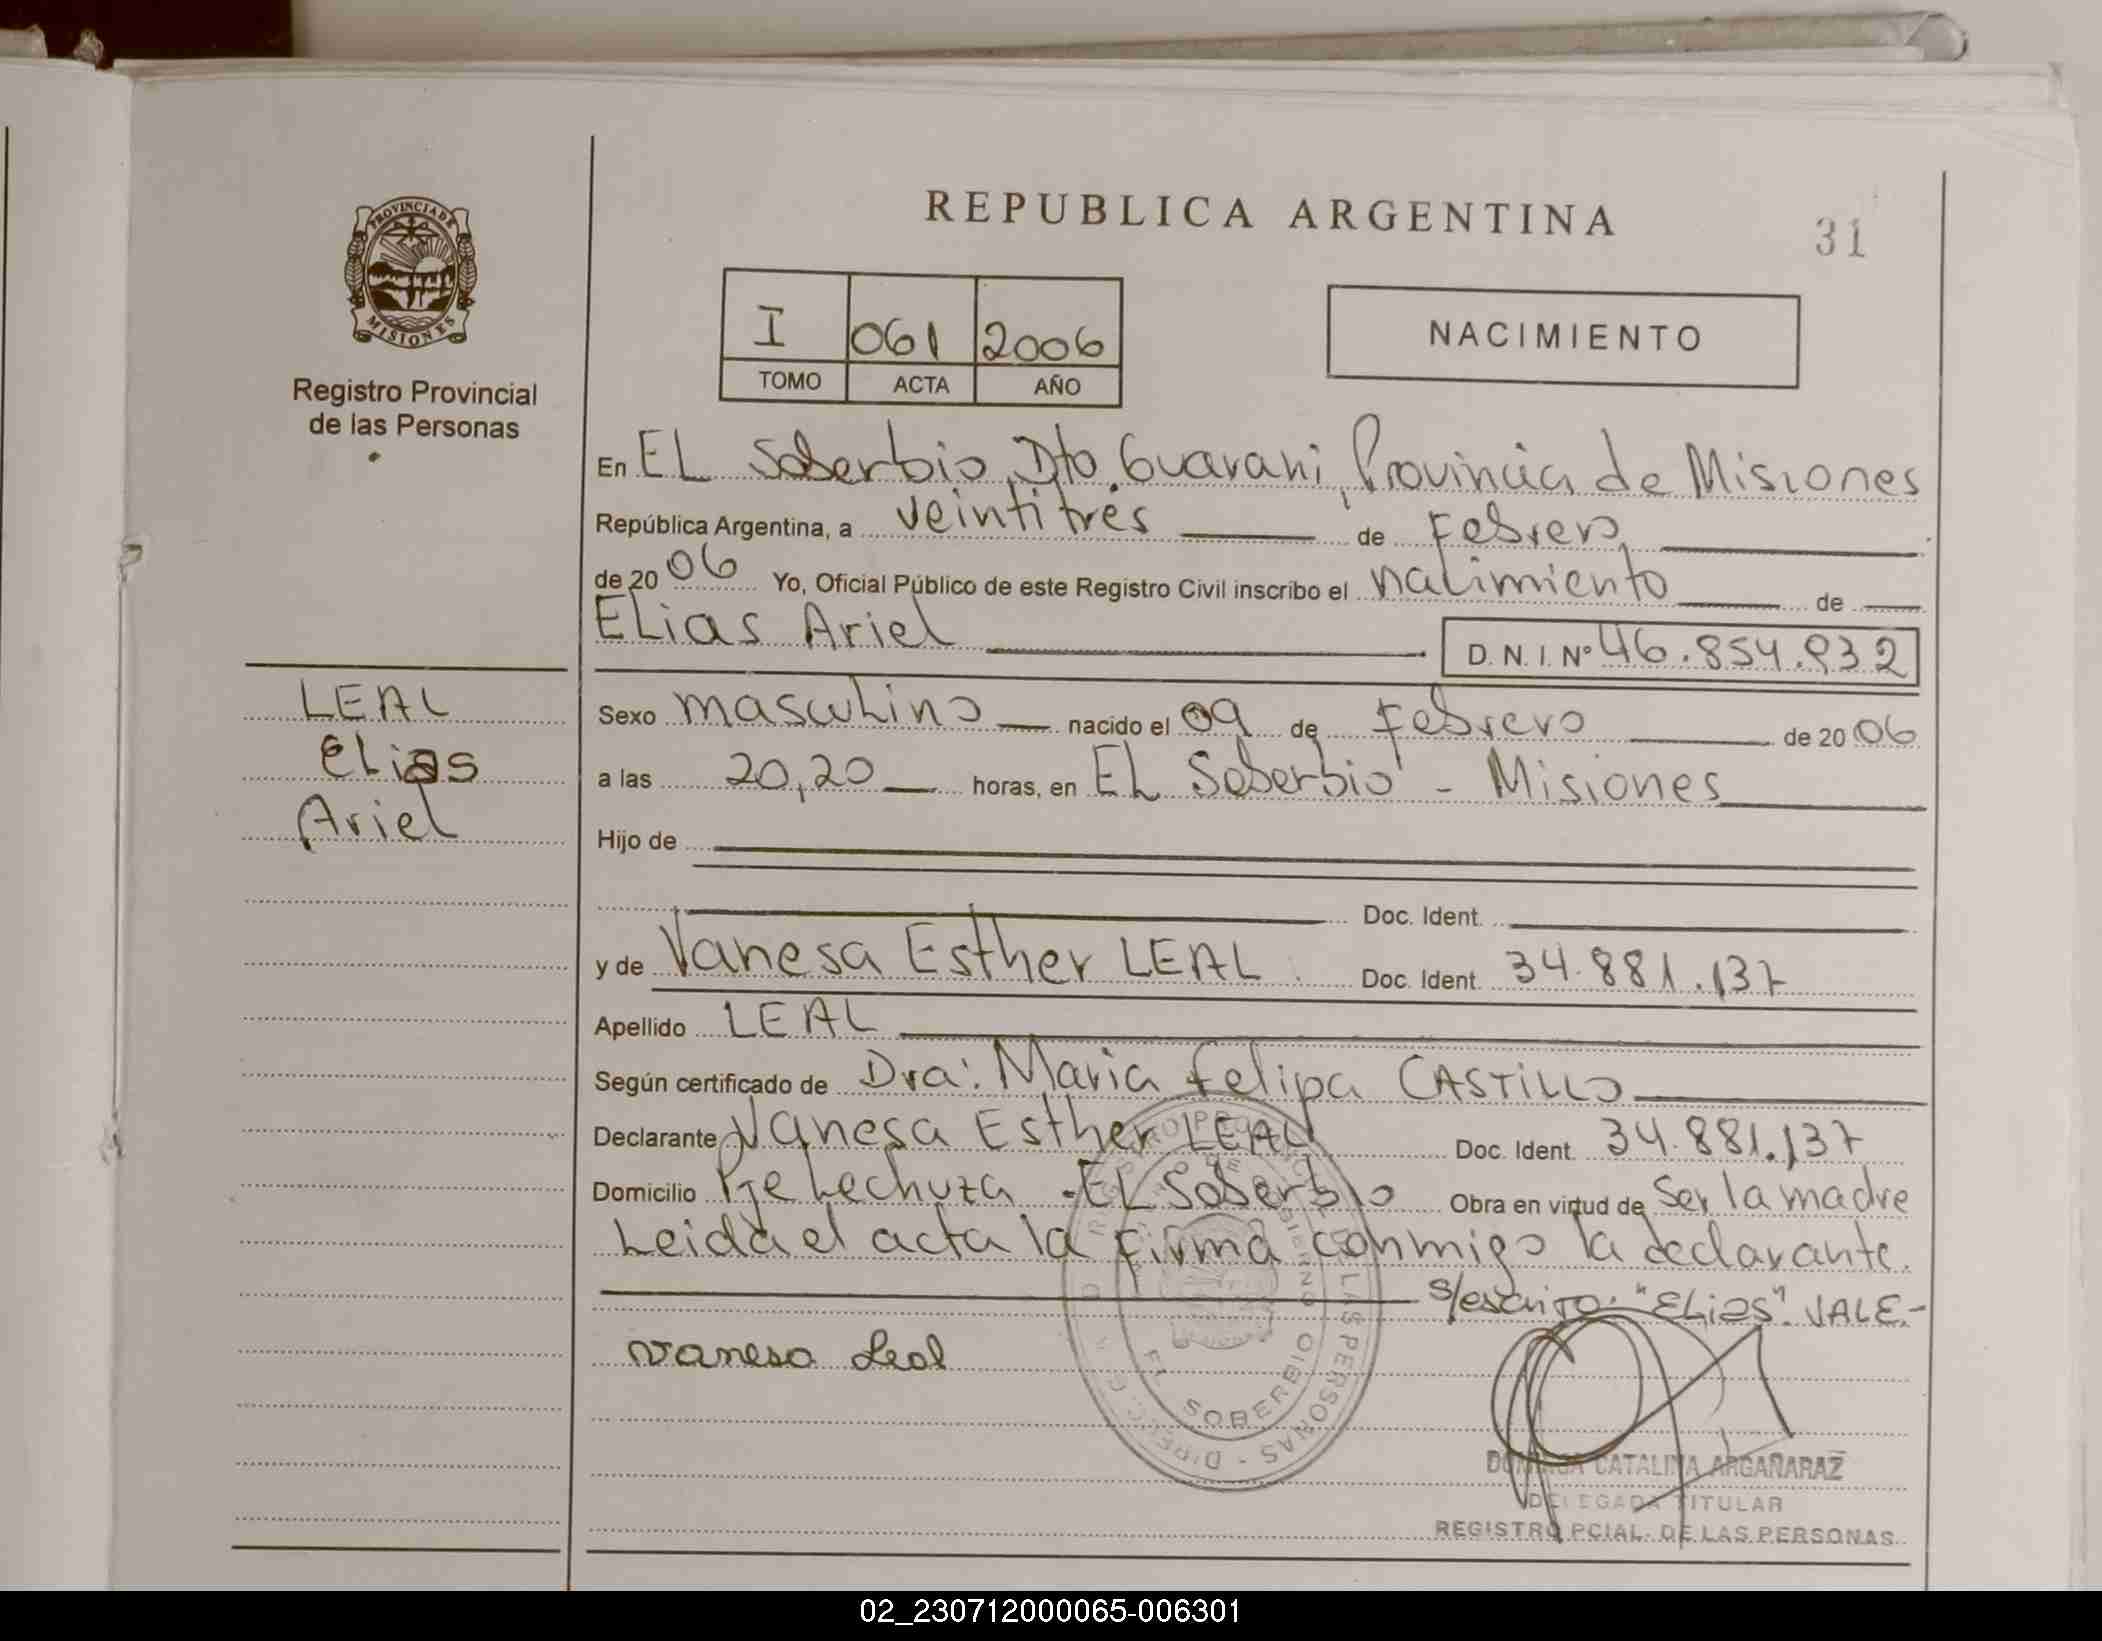 REPUBLICA ARGENTINA
31
PROVINCIA DE MISIONES
Registro Provincial
de las Personas
I 061 2006
TOMO ACTA AÑO
NACIMIENTO
En EL Soberbio, Dto. Guarani, Provincia de Misiones
República Argentina, a veintitres de Febrero
de 2006 Yo, Oficial Público de este Registro Civil inscribo el nacimiento de
ELias Ariel D. N. I. Nº 46.854.932
LEAL
Elias
Ariel
Sexo masculino nacido el 09 de Febrero de 2006
a las 20,20 horas, en EL Soberbio - Misiones
Hijo de
Doc. Ident.
y de Vanesa Esther LEAL Doc. Ident. 34.881.137
Apellido LEAL
Según certificado de Dra. Maria Felipa CASTILLO
Declarante Vanesa Esther LEAL Doc. Ident. 34.881.137
Domicilio Pje Lechuza - EL Soberbio Obra en virtud de Ser la madre
Leida el acta la firma conmigo la declarante.
s/escrito: "ELias". VALE.-
Vanesa Leal
EL SOBERBIO
LAS PERSONAS
CATALINA ARGAÑARAZ
DELEGADA TITULAR
REGISTRO PCIAL. DE LAS PERSONAS
02_230712000065-006301